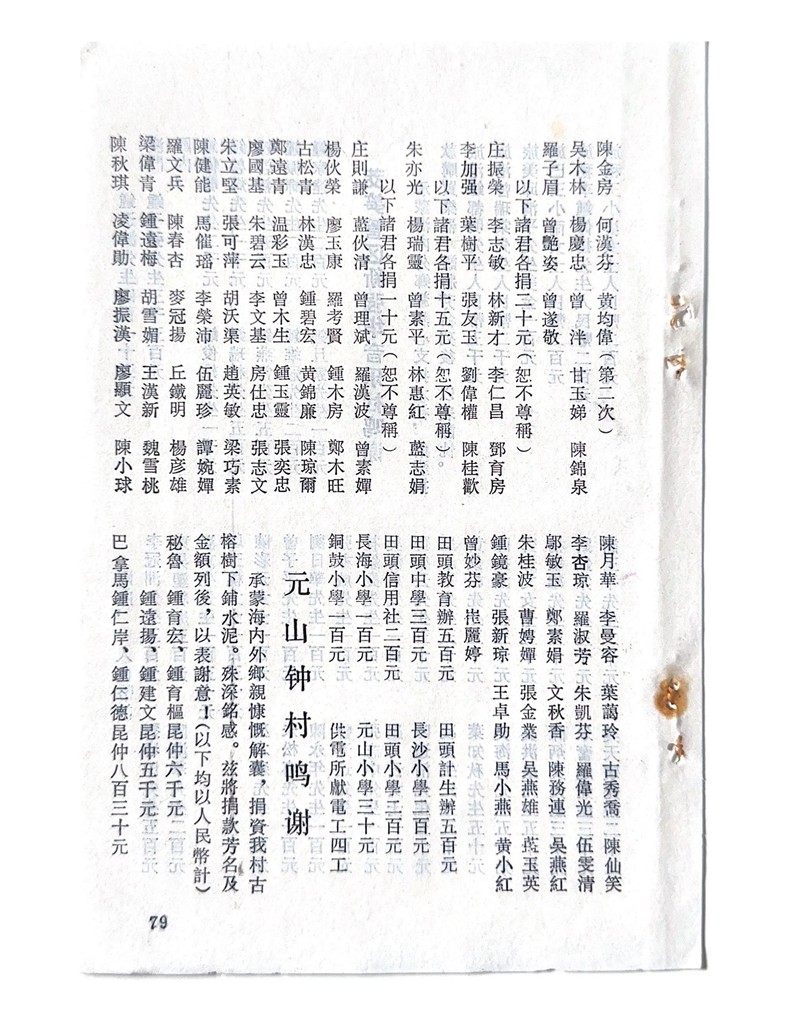 陳金房　何漢芬　黃均偉（第二次）
吳木林　楊慶忠　曾　泮　甘玉娣　陳錦泉
羅子眉　曾艷姿　曾遂敬
以下諸君各捐二十元（恕不尊稱）
庄振榮　李志敏　林新才　李仁昌　鄧育房
李加强　葉樹平　張友玉　劉偉權　陳桂歡
以下諸君各捐十五元（恕不尊稱）。
朱亦光　楊瑞靈　曾素平　林惠紅　藍志娟
以下諸君各捐一十元（恕不尊稱）
庄則謙　藍伙清　曾理斌　羅漢波　曾素嬋
楊伙榮　廖玉康　羅考賢　鍾木房　鄭木旺
古松青　林漢忠　鍾碧宏　黃錦廉　陳琼爾
鄭遠青　温彩玉　曾木生　鍾玉靈　張奕忠
廖國基　朱碧云　李文基　房仕忠　張志文
朱立堅　張可萍　胡沃渠　趙英敏　梁巧素
陳健能　馬催璿　李榮沛　伍麗珍　譚婉嬋
羅文兵　陳春杏　麥冠揚　丘鐵明　楊彦雄
梁偉青　鍾遠梅　胡雪媚　王漢新　魏雪桃
陳秋琪　凌偉勛　廖振漢　廖顯文　陳小球
陳月華　李曼容　葉藹玲　古秀喬　陳仙笑
李杏琼　羅淑芳　朱凱芬　羅偉光　伍雯清
鄔敏玉　鄭素娟　文秋香　陳務連　吴燕紅
朱桂波　曹娉嬋　張金業　吴燕雄　葉玉英
鍾鏡豪　張新琼　王卓勛　馬小燕　黃小紅
曾妙芬　崔麗婷
田頭教育辦五百元　田頭計生辦五百元
田頭中學三百元　長沙小學二百元
田頭信用社二百元　田頭小學二百元
長海小學一百元　元山小學三十元
銅鼓小學一百元　供電所獻電工四工
元山钟村鸣谢
承蒙海内外鄉親慷慨解囊，捐資我村古
榕樹下鋪水泥。殊深銘感。兹將捐款芳名及
金額列後，以表謝意！（以下均以人民幣計）
秘魯　鍾育宏、鍾育樞昆仲六千元
鍾遠揚、鍾建文昆仲五千元
巴拿馬鍾仁岸、鍾仁德昆仲八百三十元
79